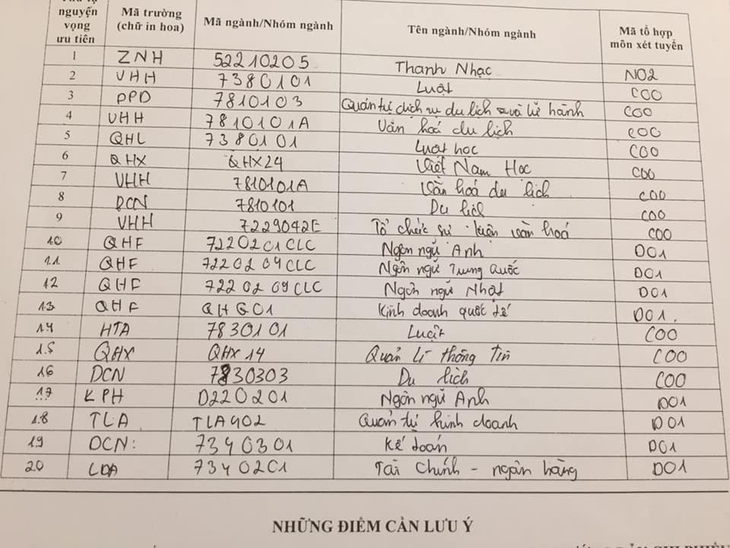 nguyện vọng ưu tiên | Mã trường (chữ in hoa) | Mã ngành/Nhóm ngành | Tên ngành/Nhóm ngành | Mã tổ hợp môn xét tuyển
1 ZNH 52210205 Thanh Nhạc N02
2 VHH 7380101 Luật C00
3 DPD 7810103 Quản trị dịch vụ du lịch và lữ hành C00
4 VHH 7810101A Văn hoá du lịch C00
5 QHL 7380101 Luật học C00
6 QHX QHX24 Việt Nam Học C00
7 VHH 7810101A Văn hoá du lịch C00
8 DCN 7810101 Du lịch C00
9 VHH 7229042E Tổ chức sự kiện văn hoá C00
10 QHF 7220201CLC Ngôn ngữ Anh D01
11 QHF 7220204CLC Ngôn ngữ Trung Quốc D01
12 QHF 7220209CLC Ngôn ngữ Nhật D01
13 QHF QHG01 Kinh doanh quốc tế D01.
14 HTA 7830101 Luật C00
15 QHX QHX14 Quản lí thông tin C00
16 DCN 7830303 Du lịch C00
17 KPH D220201 Ngôn ngữ Anh D01
18 TLA TLA402 Quản trị kinh doanh D01
19 DCN: 7340301 Kế toán D01
20 LDA 7340201 Tài Chính - ngân hàng D01
NHỮNG ĐIỂM CẦN LƯU Ý